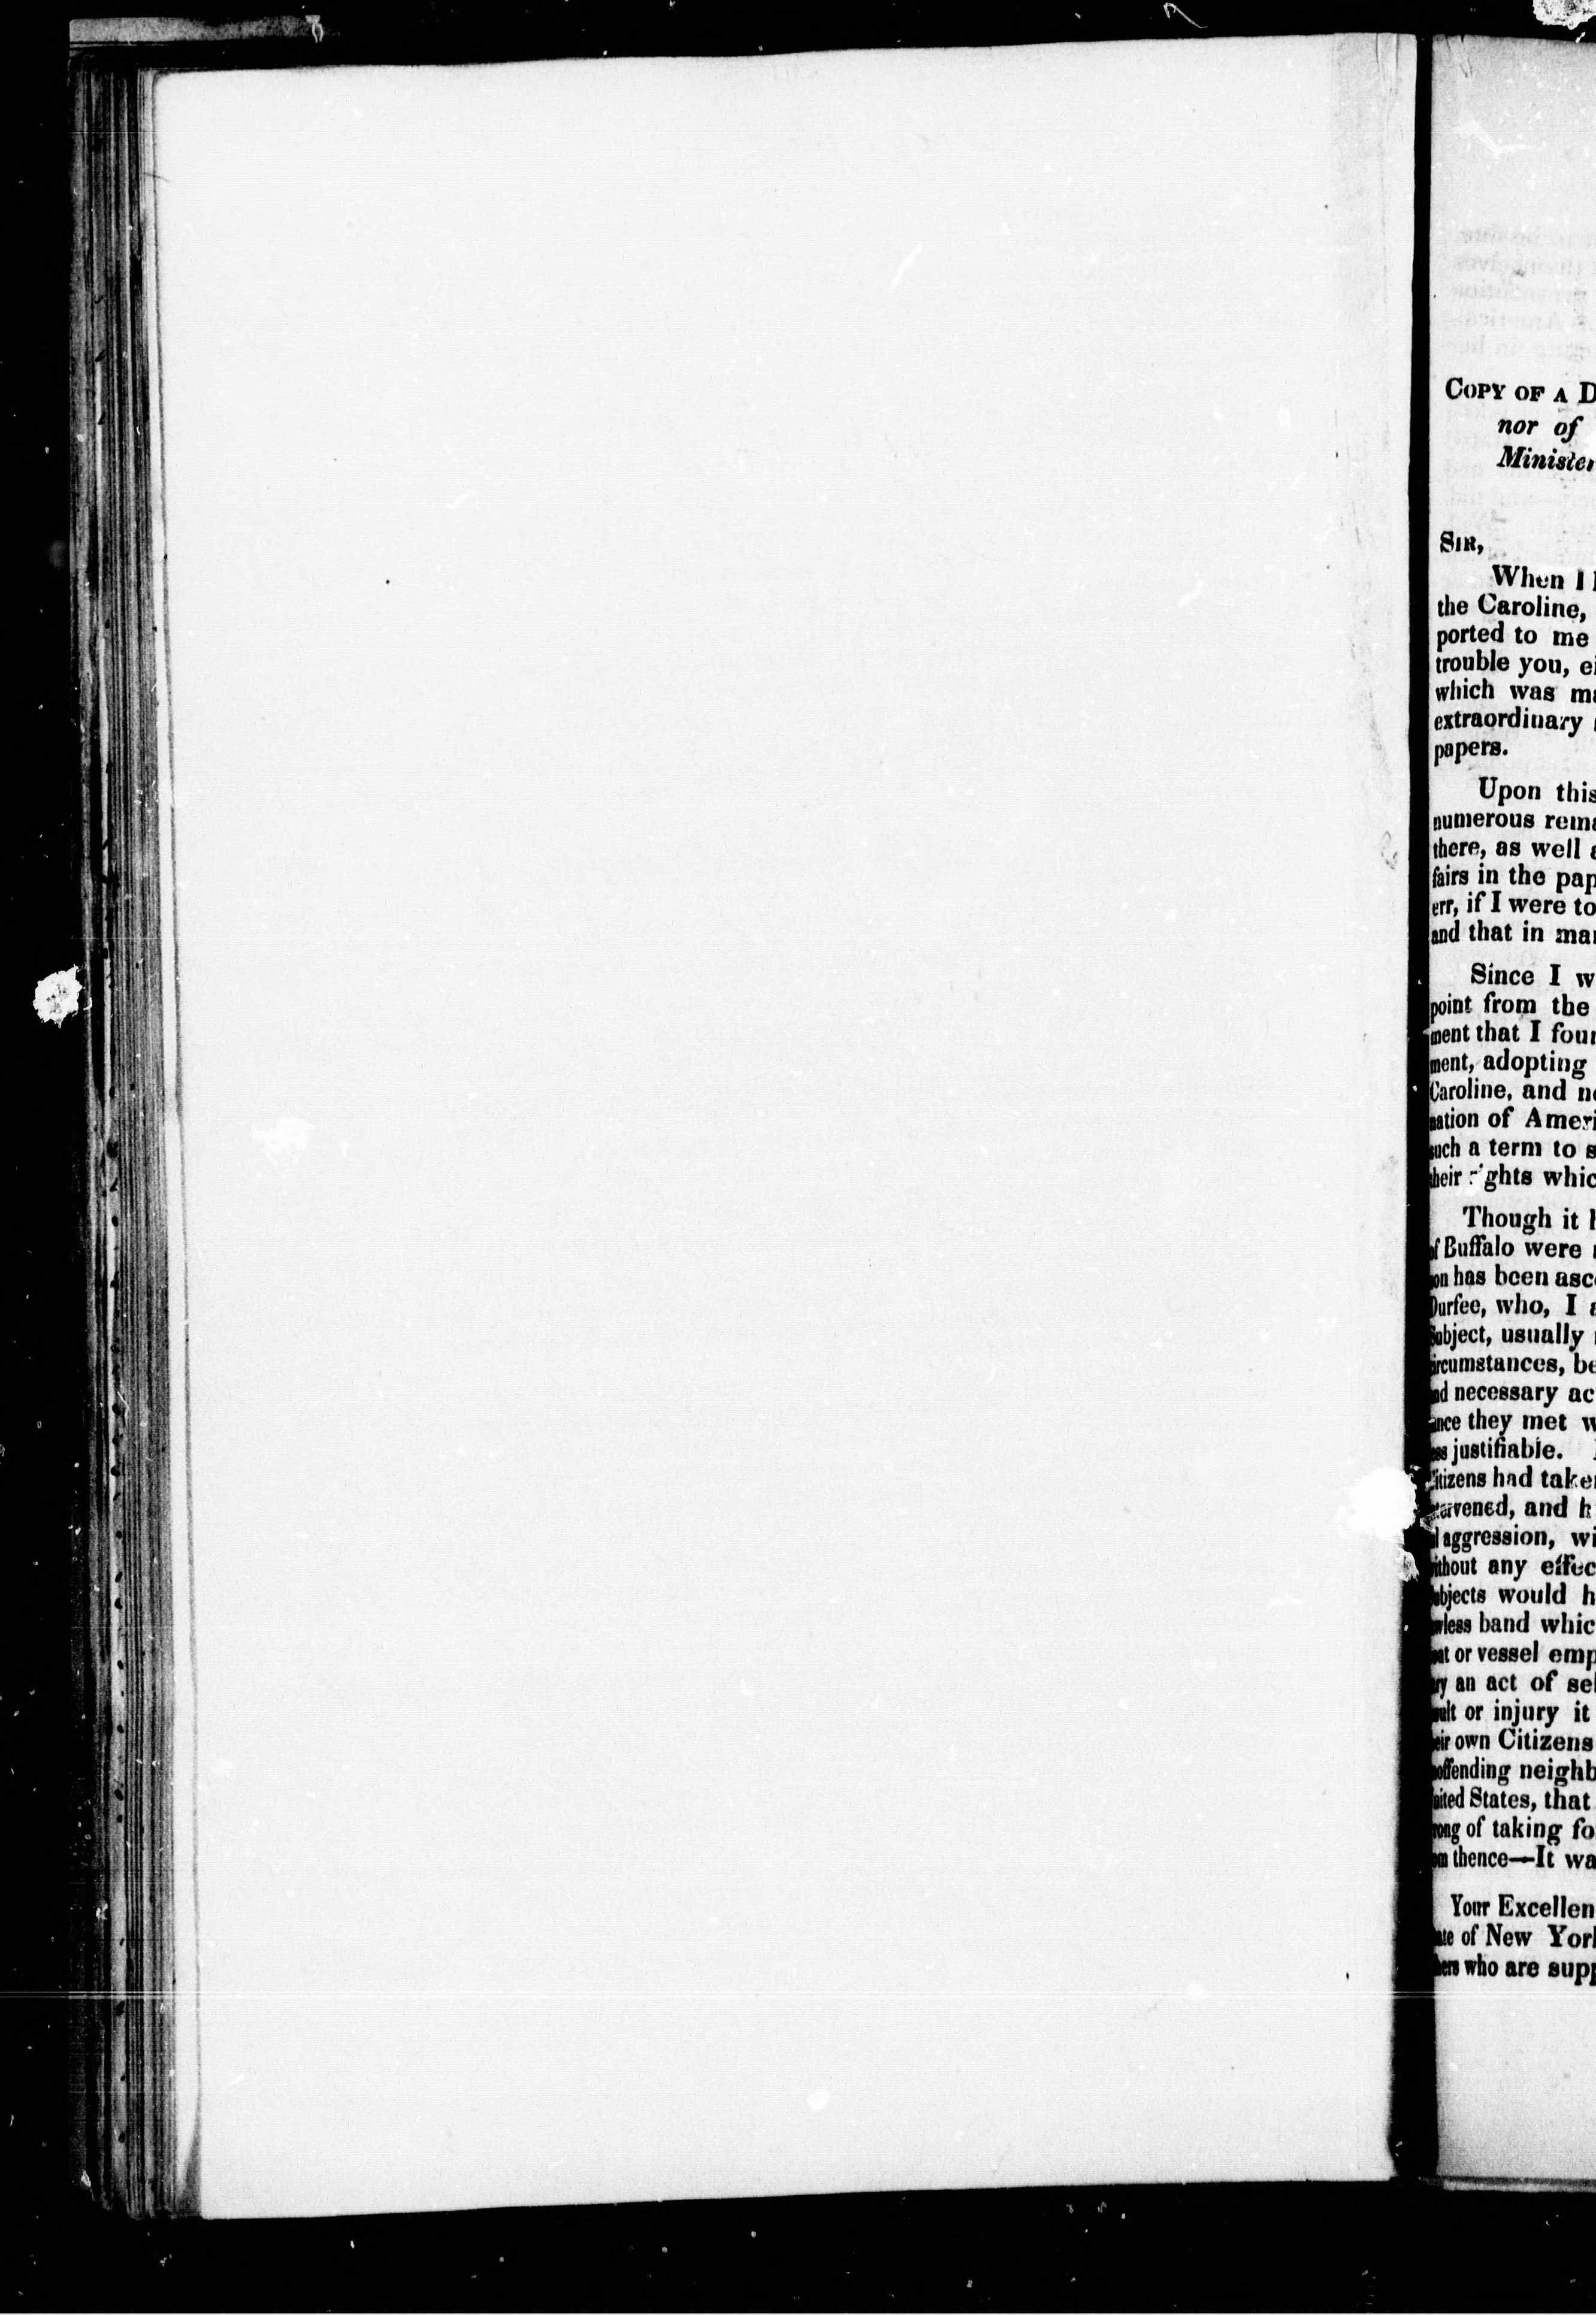 COPY OF A D
nor of
Minister
SIR,
When I
the Caroline,
ported to me
trouble you, ei
which was ma
extraordinary
papers.
Upon this
numerous rema
there, as well a
fairs in the pap
err, if I were to
and that in man
Since I w
point from the
ment that I foun
ment, adopting
Caroline, and no
nation of Ameri
such a term to s
their rights whic
Though it h
of Buffalo were
son has been asce
Durfee, who, I a
Subject, usually
ircumstances, be
nd necessary ac
ance they met w
ess justifiable.
Citizens had taken
ntervened, and h
l aggression, wi
ithout any effec
ubjects would h
wless band whic
oat or vessel emp
ry an act of sel
sult or injury it
eir own Citizens
noffending neighb
nited States, that
rong of taking fo
om thence—It wa
Your Excellen
ate of New York
hers who are supp